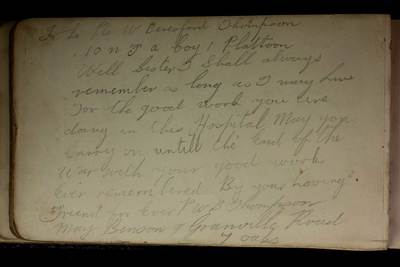 Pte W Beresford Thompson
10 N F a Coy 1 Platoon
Well Sister I Shall always
remember as long as I may live
For the good work you are
doing in this Hospital May you
Carry on untill the End of the
War with your good work
Ever remembered By your loving
Friend for Ever P W B Thompson
May Benson Granville Road
7 oaks